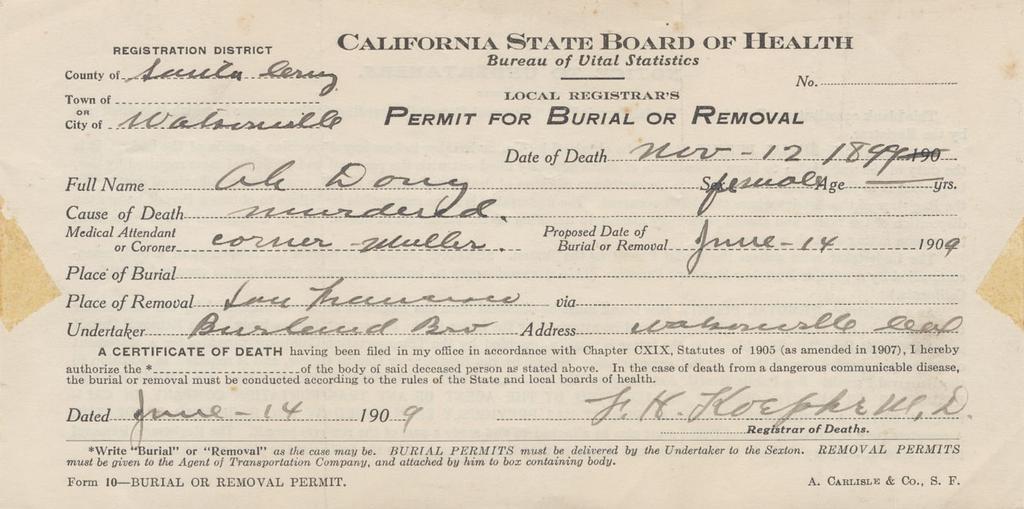 REGISTRATION DISTRICT
CALIFORNIA STATE BOARD OF HEALTH
Bureau of Vital Statistics
County of Santa Cruz
No.
Town of
LOCAL REGISTRAR'S
OR
City of Watsonville
PERMIT FOR BURIAL OR REMOVAL
Date of Death Nov - 12 1899 190
Full Name Ah Dong Sex female Age yrs.
Cause of Death murdered.
Medical Attendant or Coroner corner Muller. Proposed Date of Burial or Removal June - 14 1909
Place of Burial
Place of Removal San Francisco via
Undertaker Bro Address Watsonville Cal
A CERTIFICATE OF DEATH having been filed in my office in accordance with Chapter CXIX, Statutes of 1905 (as amended in 1907), I hereby
authorize the * of the body of said deceased person as stated above. In the case of death from a dangerous communicable disease,
the burial or removal must be conducted according to the rules of the State and local boards of health.
Dated June - 14 1909 Koepke M.D.
Registrar of Deaths.
*Write "Burial" or "Removal" as the case may be. BURIAL PERMITS must be delivered by the Undertaker to the Sexton. REMOVAL PERMITS
must be given to the Agent of Transportation Company, and attached by him to box containing body.
Form 10—BURIAL OR REMOVAL PERMIT.
A. CARLISLE & CO., S. F.